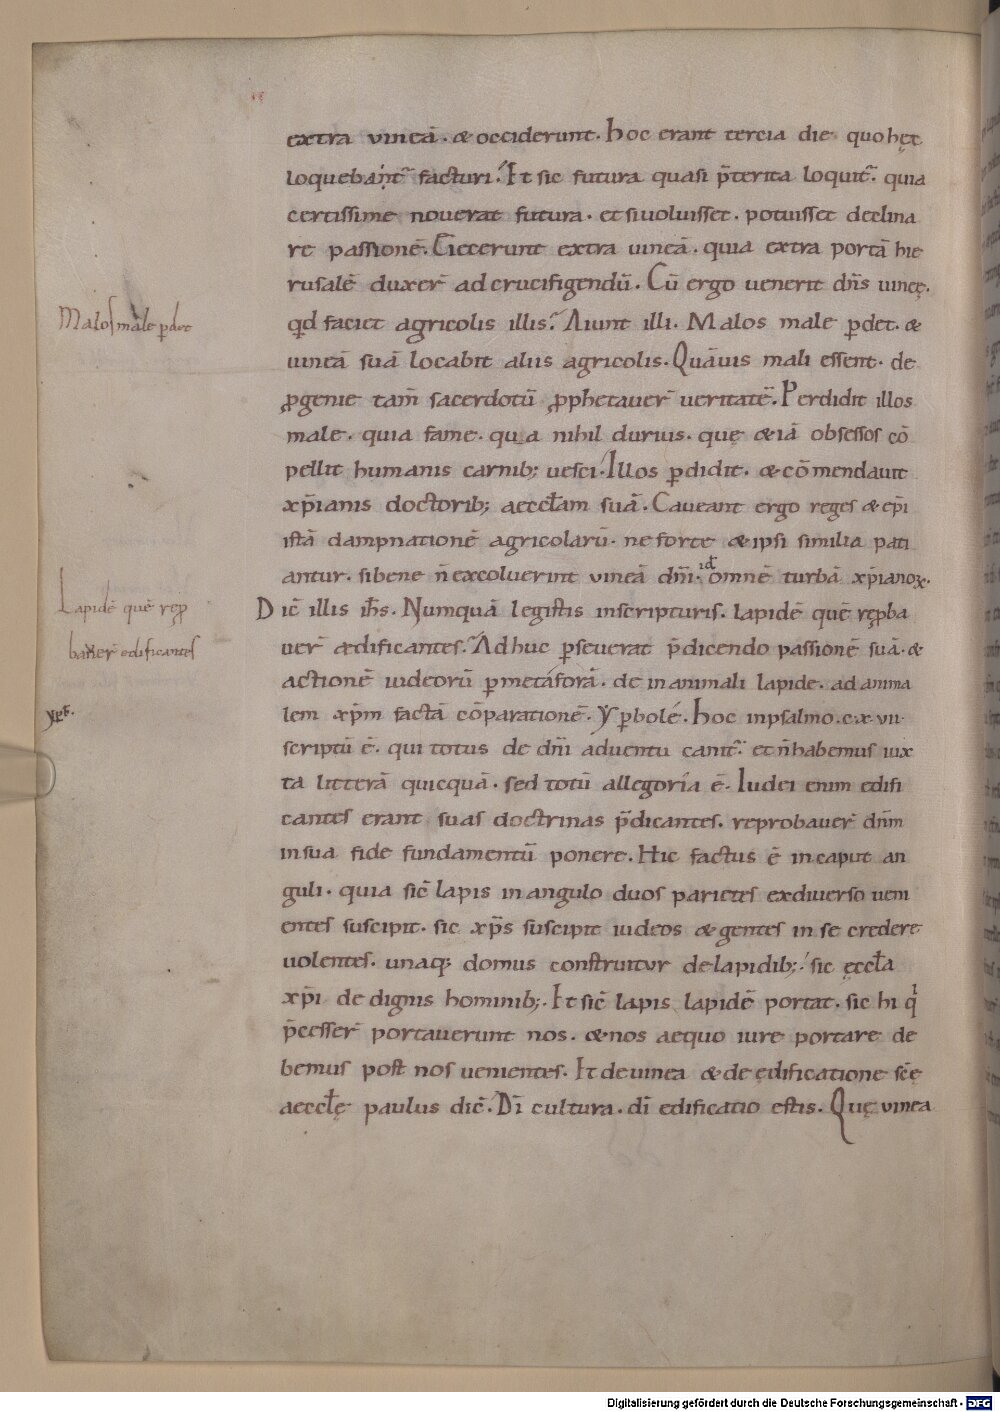 extra vineā · & occiderunt · hoc erant tercia die quo hęc
loquebant᷑ facturi. Et sic futura quasi p̄terita loquit᷑ · quia
certissime noverat futura · et si voluisset · potuisset declina
re passionē. Eiecerunt extra vineā · quia extra portā hie
rusalē duxer̄ ad crucifigendū. Cū ergo venerit dn̄s vineę ·
qđ faciet agricolis illis. Aiunt illi. Malos male ꝑdet · &
vineā suā locabit aliis agricolis. Quāvis mali essent · de
ꝓgenie tam̄ sacerdotū ꝓphetaver̄ veritatē. Perdidit illos
male · quia fame · qua nihil durius · quę & iā obsessos cō
pellit humanis carnib; vesci. Illos ꝑdidit · & cōmendavit
xp̄ianis doctorib; aeccłam suā. Caveant ergo reges & ep̄i
istā dampnationē agricolarū · ne forte & ipsi similia pati
antur · si bene n̄ excoluerint vineā dn̄i · idł omnē turbā xp̄ianoꝝ.
Dic̄ illis ih̄s. Numquā legistis in scripturis. Lapidē quē reꝓba
ver̄ ædificantes. Ad huc ꝑseverat p̄dicendo passionē suā · &
actionē iudeorū ꝑ metáforā · de inanimali lapide · ad anima
lem xp̄m factā cōparationē. Yꝑbolé. Hoc in psalmo · c · x · vii ·
scriptū ē · qui totus de dn̄i adventu canit᷑ · et n̄ habemus iux
ta litterā quicquā · sed totū allegoría ē. Iudei enim edifi
cantes erant suas doctrinas p̄dicantes · reprobaver̄ dn̄m
in sua fide fundamentū ponere. Hic factus ē in caput an
guli · quia sic̄ lapis in angulo duos parietes ex diverso veni
entes suscipit · sic xp̄s suscipit iudeos & gentes in se credere
volentes · unaq; domus construitur de lapidib; · sic ęccła
xp̄i de dignis hominib;. Et sic̄ lapis lapidē portat · sic hi q̄
p̄cesser̄ portaverunt nos · & nos aequo iure portare de
bemus post nos venientes. Et de vinea & de ędificatione sc̄ę
aeccłę paulus dic̄. Dī cultura · dī edificatio estis. Quę vinea
Malos male ꝑdet
Lapidē quē reꝓ
baver̄ edificantes